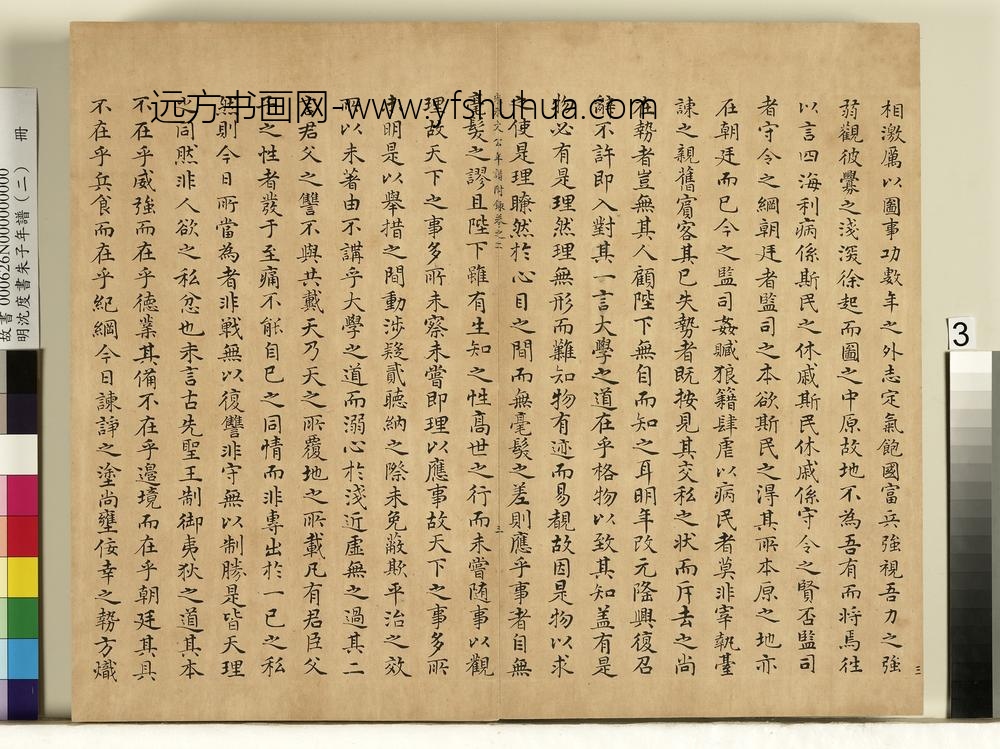 相激厲以圖事功數年之外志定氣飽國富兵強視吾力之強
弱觀彼釁之淺深徐起而圖之中原故地不為吾有而將焉往
以言四海利病係斯民之休戚斯民休戚係守令之賢否監司
者守令之綱朝廷者監司之本欲斯民之得其所本原之地亦
在朝廷而已今之監司姦贓狼籍肆虐以病民者莫非宰執臺
諫之親舊賓客其已失勢者既按見其交私之狀而斥去之尚
在勢者豈無其人顧陛下無自而知之耳明年改元隆興復召
辭不許即入對其一言大學之道在乎格物以致其知盖有是
物必有是理然理無形而難知物有迹而易覩故因是物以求
之使是理瞭然於心目之間而無毫髮之差則應乎事者自無
文公年譜附錄卷之二
三
毫髮之謬且陛下雖有生知之性高世之行而未嘗随事以觀
理故天下之事多所未察未嘗即理以應事故天下之事多所
未明是以舉措之間動涉疑貳聽納之際未免蔽欺平治之效
所以未著由不講乎大學之道而溺心於淺近虛無之過其二
言君父之讐不與共戴天乃天之所覆地之所載凡有君臣父
子之性者發于至痛不能自已之同情而非專出於一己之私
然則今日所當為者非戰無以復讐非守無以制勝是皆天理
之同然非人欲之私忿也末言古先聖王制御夷狄之道其本
不在乎威強而在乎德業其備不在乎邉境而在乎朝廷其具
不在乎兵食而在乎紀綱今日諫諍之塗尚壅佞幸之勢方熾
远方书画网-www.yfshuhua.com
故書 000626N000000000
明沈度書朱子年譜(二) 冊
3
三